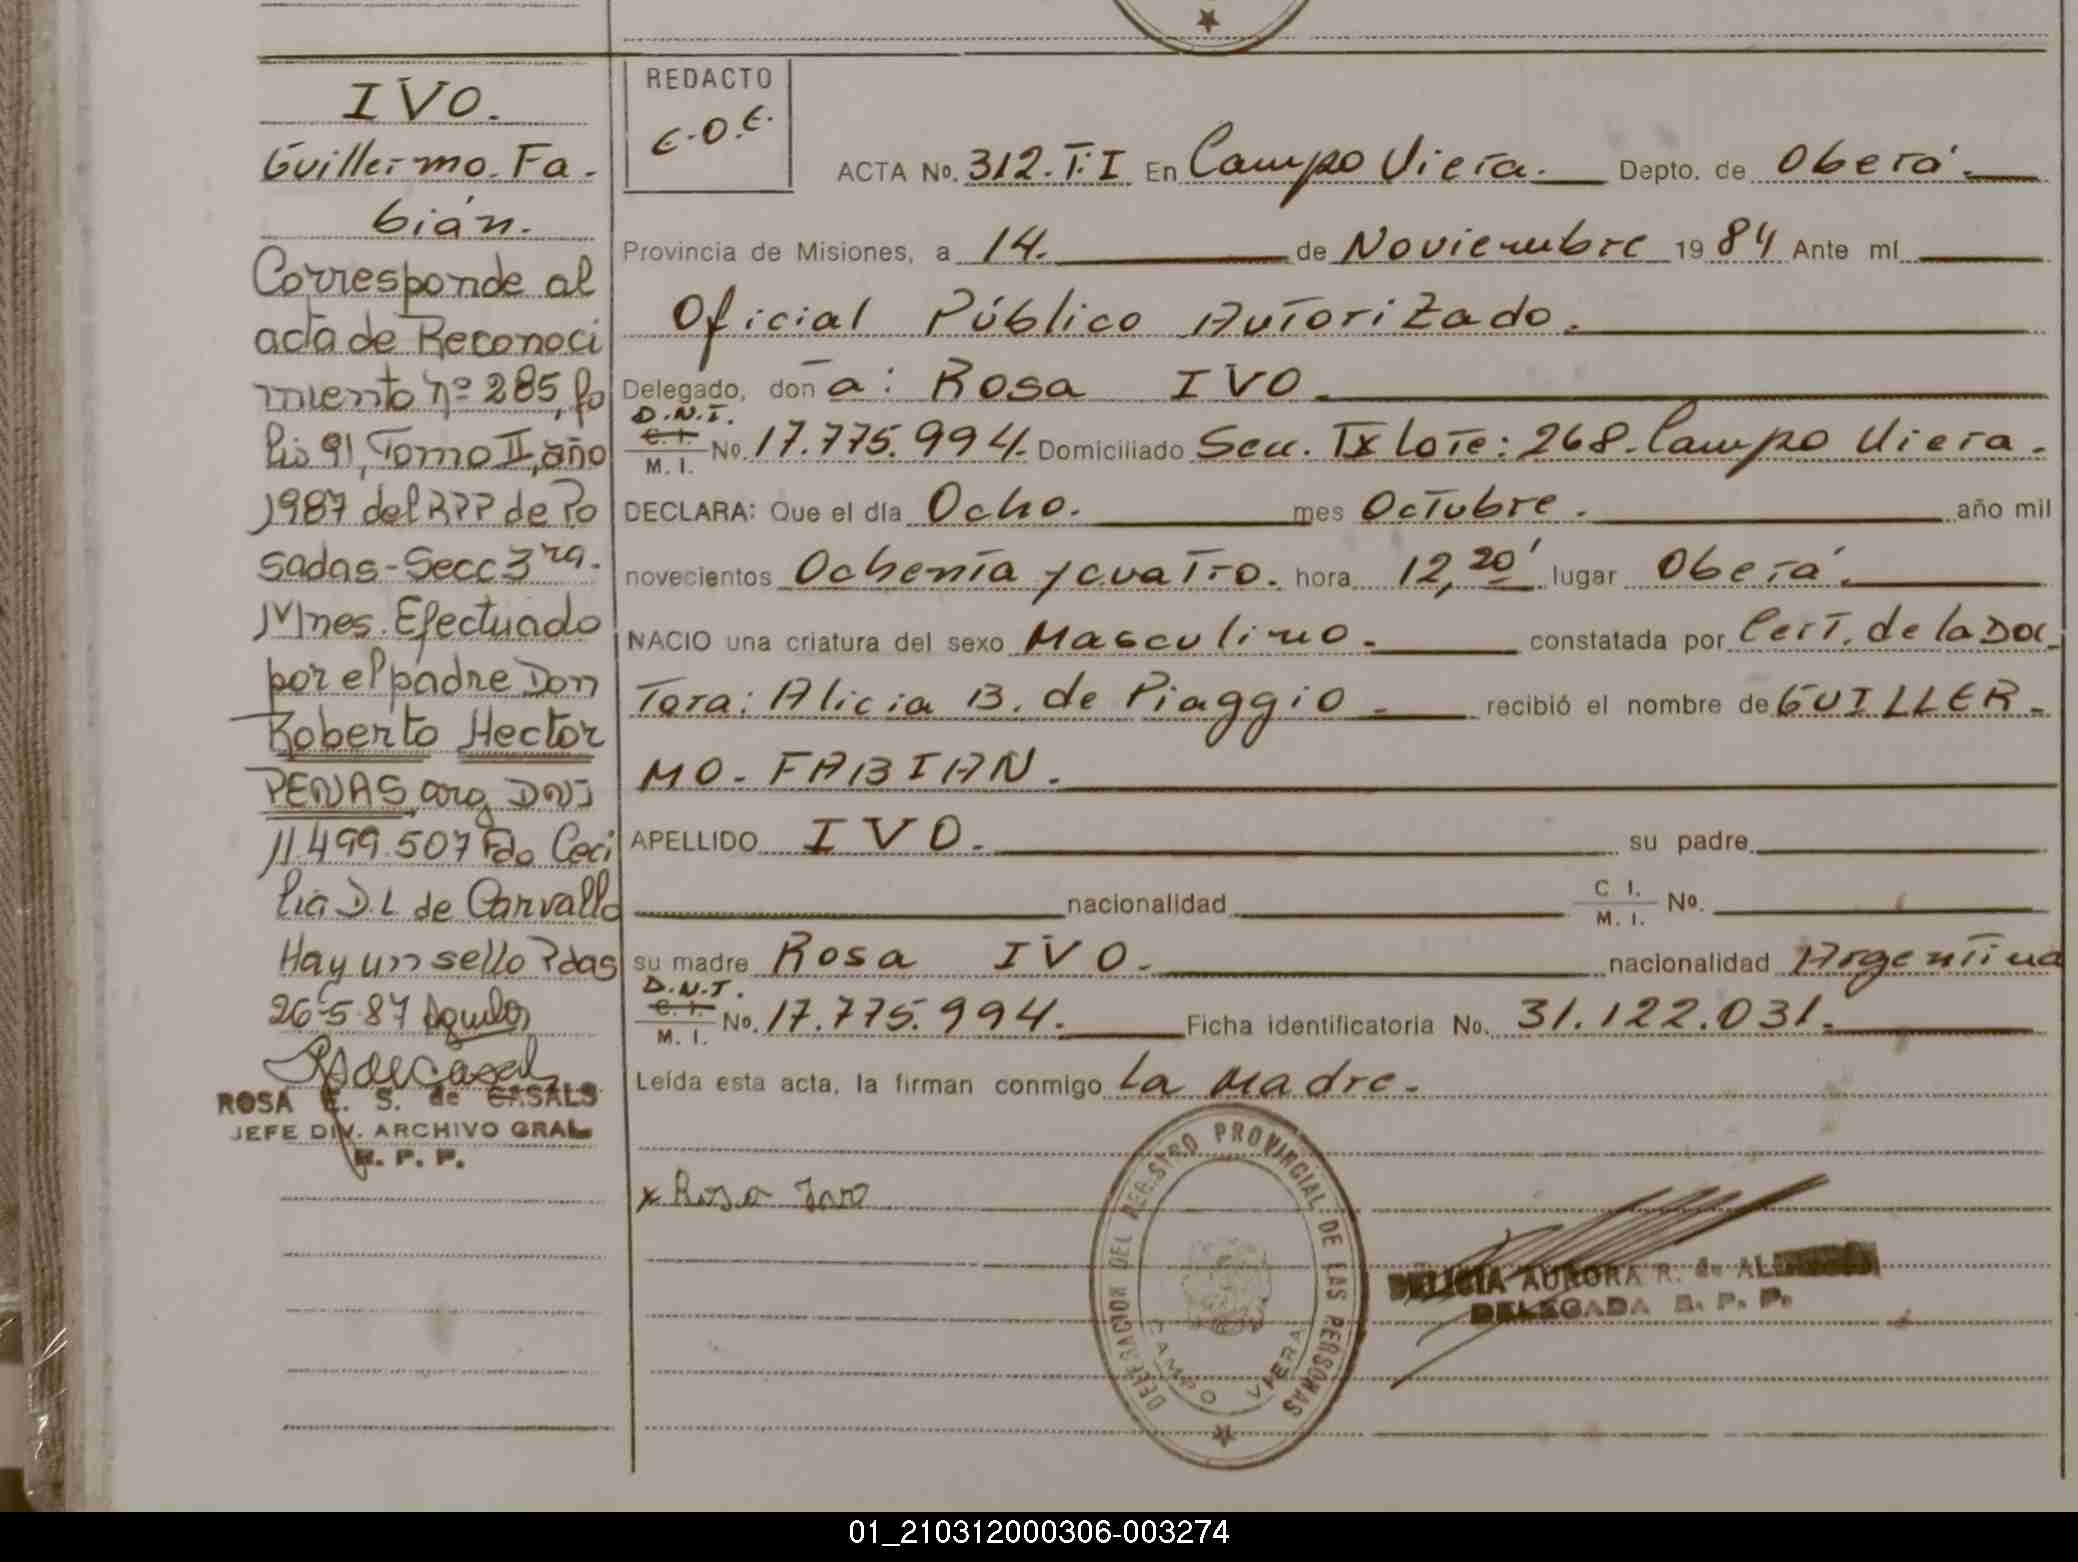 IVO.
Guillermo. Fa-
bián.
Corresponde al
acta de Reconoci
miento nº 285, fo
lio 91, Tomo II, año
1987 del RPP de Po
sadas - Secc 3ra.
Mnes. Efectuado
por el padre Don
Roberto Hector
PENAS, arg DNI
11.499.507 Fdo Ceci
lia D.L de Carvallo
Hay un sello Pdas
26-5-87
ROSA E. S. de CASALS
JEFE DIV. ARCHIVO GRAL
R. P. P.
REDACTO
E.O.E.
ACTA No. 312. T. I En Campo Viera. Depto. de Oberá.
Provincia de Misiones, a 14. de Noviembre 1984 Ante mí
Oficial Público Autorizado.
Delegado, don a: Rosa IVO
D.N.I.
C. I.
M. I. No. 17.775.994. Domiciliado Secc. IX Lote: 268. Campo Viera.
DECLARA: Que el día Ocho. mes Octubre. año mil
novecientos Ochenta y cuatro. hora 12,20' lugar Oberá.
NACIO una criatura del sexo Masculino. constatada por Cert. de la Doc-
tora: Alicia B. de Piaggio - recibió el nombre de GUILLER-
MO. FABIAN.
APELLIDO IVO. su padre
nacionalidad C I. M. I. No.
su madre Rosa IVO. nacionalidad Argentina
D.N.I.
C. I.
M. I. No. 17.775.994. Ficha identificatoria No. 31.122.031.
Leída esta acta, la firman conmigo La Madre.
x Rosa Ivo
DELEGACION DEL REGISTRO PROVINCIAL DE LAS PERSONAS
CAMPO VIERA
DELICIA AURORA R. de
DELEGADA R. P. P.
01_210312000306-003274